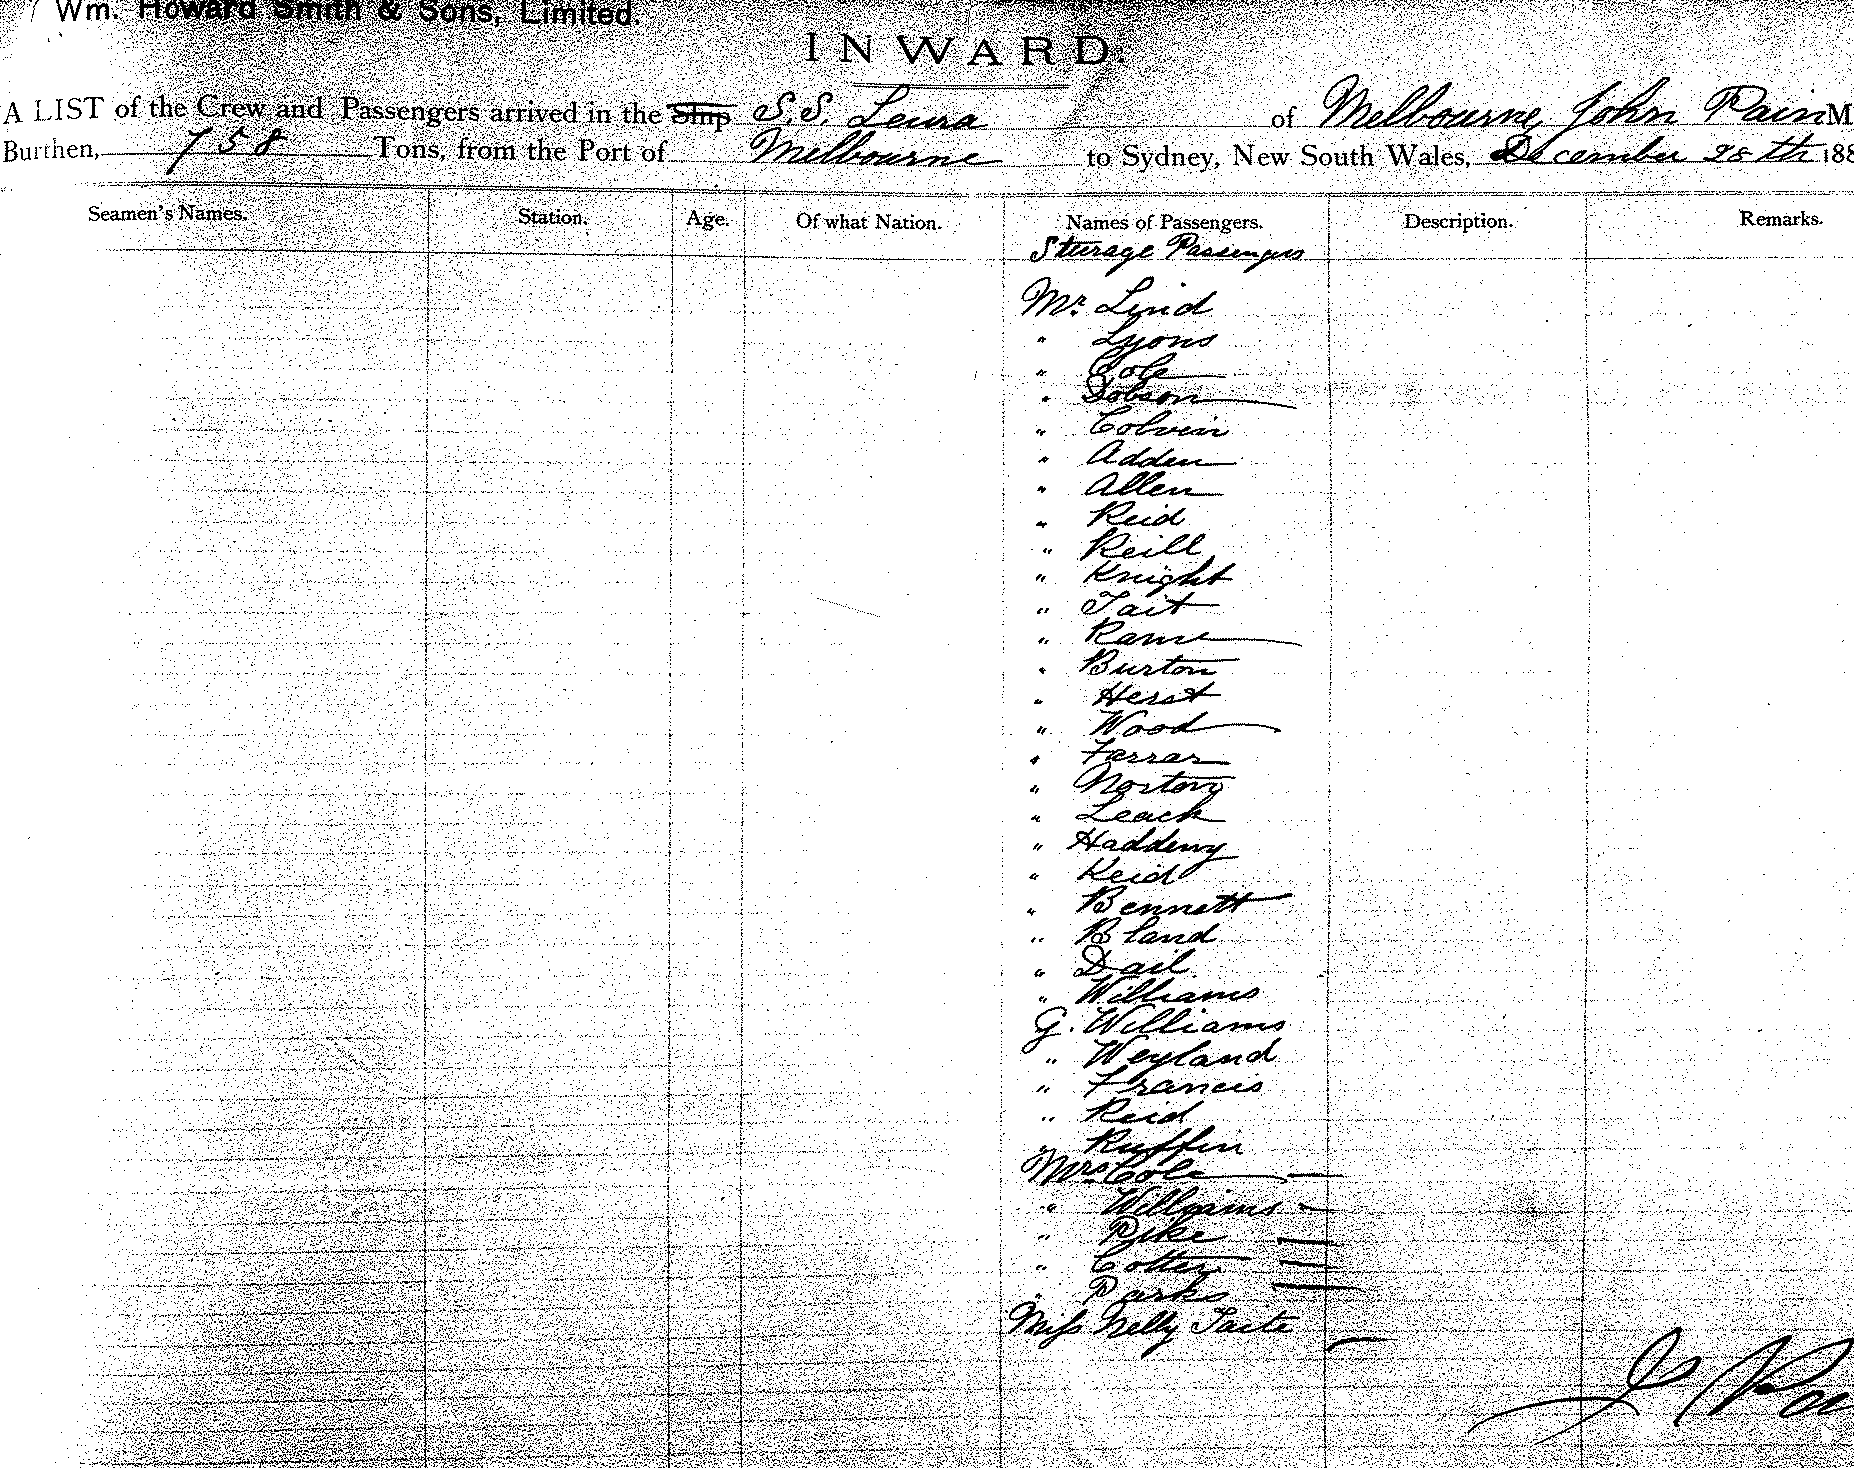 Wm. Howard Smith & Sons, Limited.
INWARD.
A LIST of the Crew and Passengers arrived in the Ship S.S. Leura of Melbourne, John Pain M
Burthen, 758 Tons, from the Port of Melbourne to Sydney, New South Wales, December 28th 188
Seamen's Names. Station. Age. Of what Nation. Names of Passengers. Description. Remarks.
Steerage Passengers
Mr. Lind
" Lyons
" Cole
" Dobson
" Colvin
" Adden
" Allen
" Reid
" Reill
" Knight
" Tait
" Rame
" Burton
" Herst
" Wood
" Farrar
" Norton
" Leach
"
" Reid
" Bennett
" Bland
" Dail
" Williams
G. Williams
" Weyland
" Francis
" Reid
" Ruffin
Mrs. Cole
" Williams
" Pyke
" Cotter
" Parks
Miss Nelly Taite
J Pa